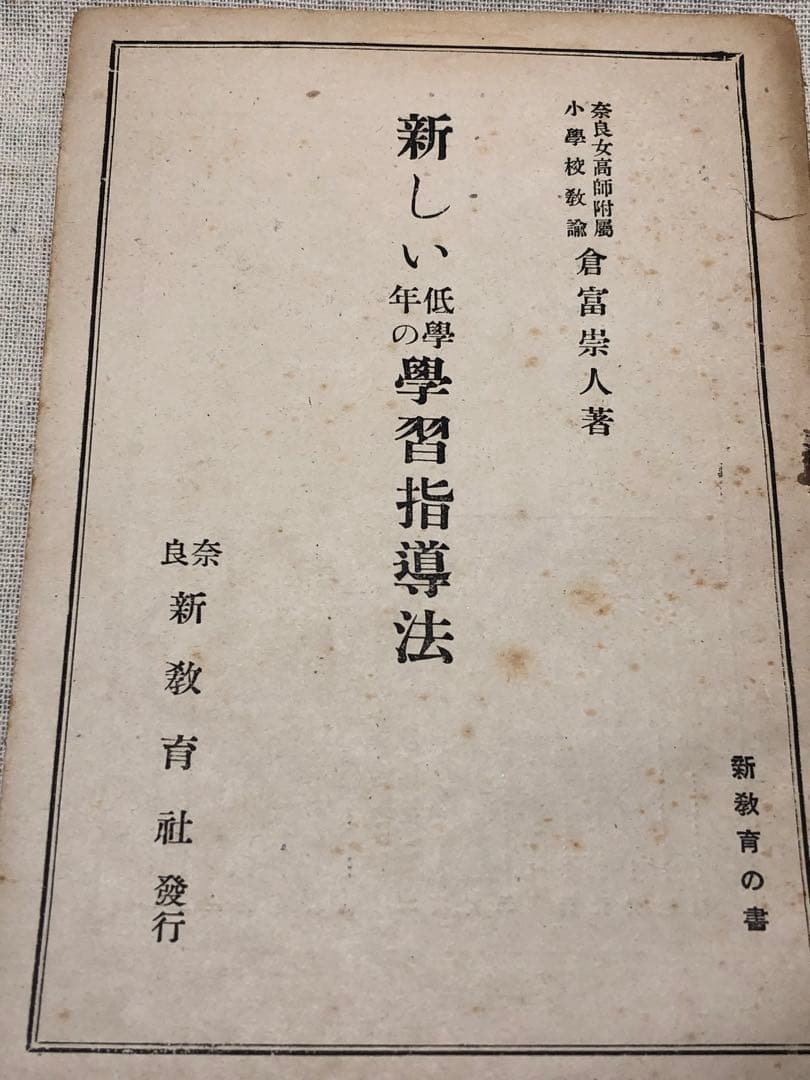 奈良女高師附屬
小學校敎諭
倉富崇人著
新しい低學年の學習指導法
奈良新敎育社發行
新敎育の書